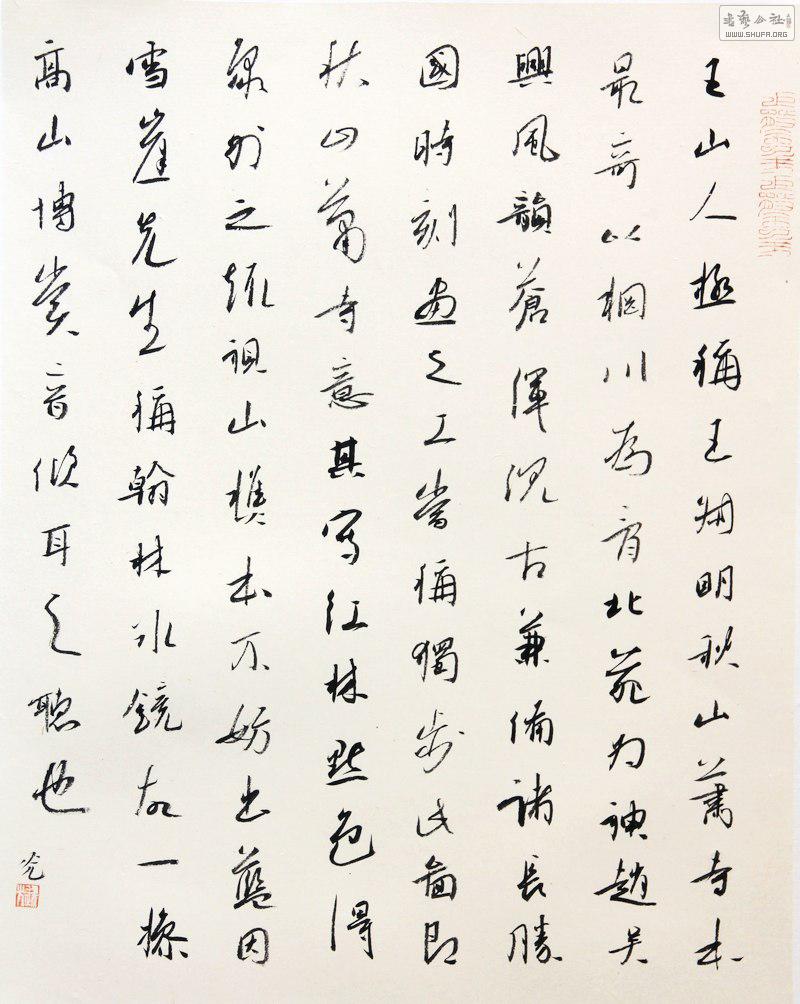 王山人極稱王叔明秋山蕭寺本
最奇以輞川為骨北苑为神趙吴
興風韻蒼渾沉古兼備諸長勝
國時刻畫之工當稱獨步此圖即
秋山蕭寺意其寫紅林點色得
象外之趣視山樵本不妨出藍因
雪崖先生稱翰林冰鏡故一操
高山博賞音傾耳之聽也
書藝公社
WWW.SHUFA.ORG